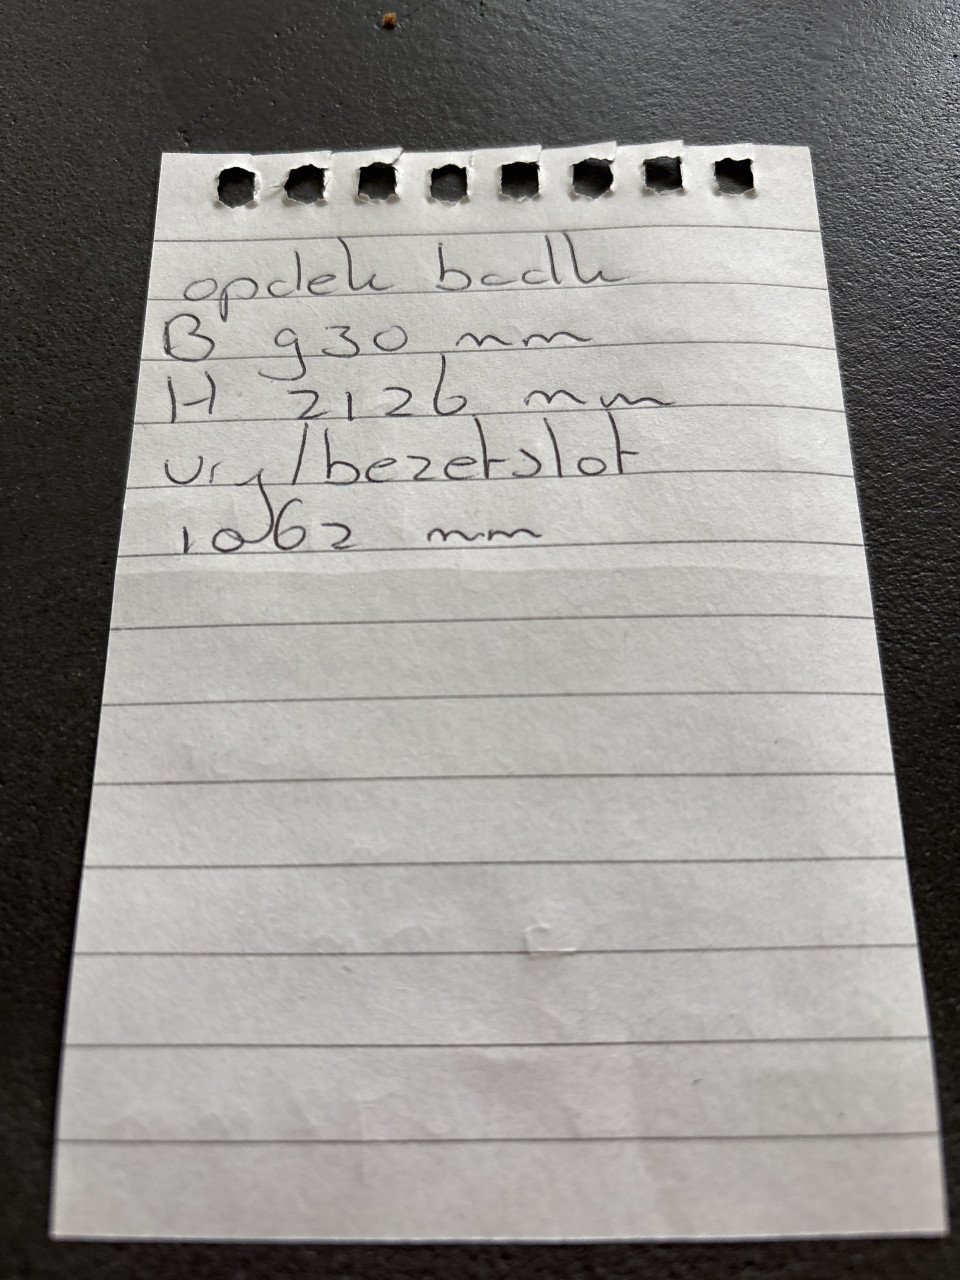 opdek badk
B 930 mm
H 2126 mm
vrij/bezetslot
1062 mm